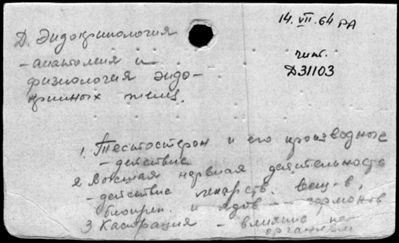 14.VII.64 РА
Д. Эндокринология
- анатомия и
физиология эндо-
кринных желез.
чит.
D31103
1. Тестостерон и его производные
- действие
2. Высшая нервная деятельность
- действие лекарств. веществ,
и ядов - гормонов
3. Кастрация - влияние на
организм